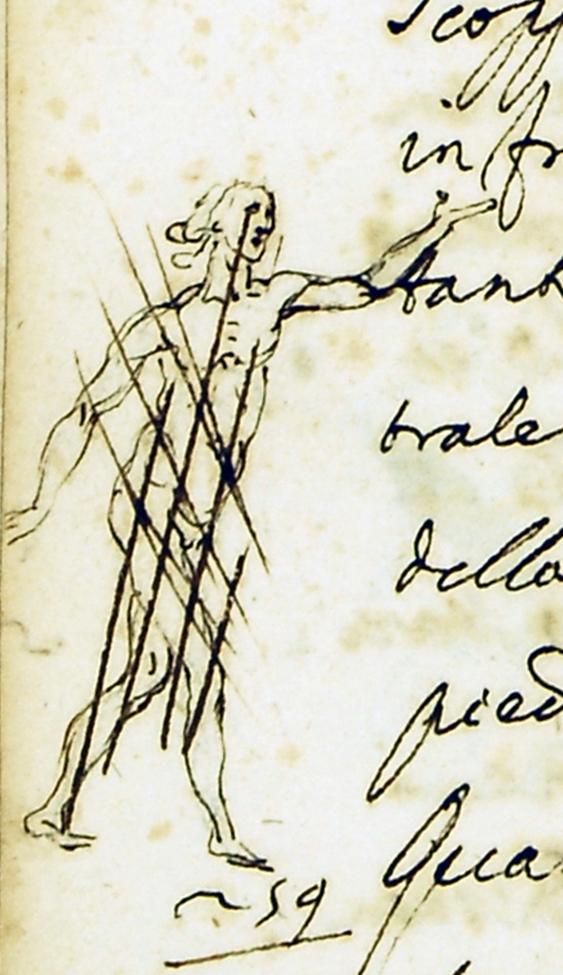 Scop
in fr
tant
trale
dello
pied
Qua
~ 59